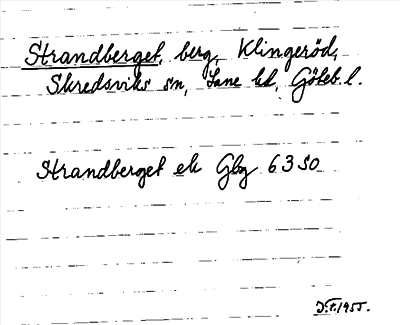 Strandberget, berg, Klingeröd,
Skredsviks sn, Lane hd, Göteb. l.
Strandberget ek Gbg 63 SO
J.F. 1955.